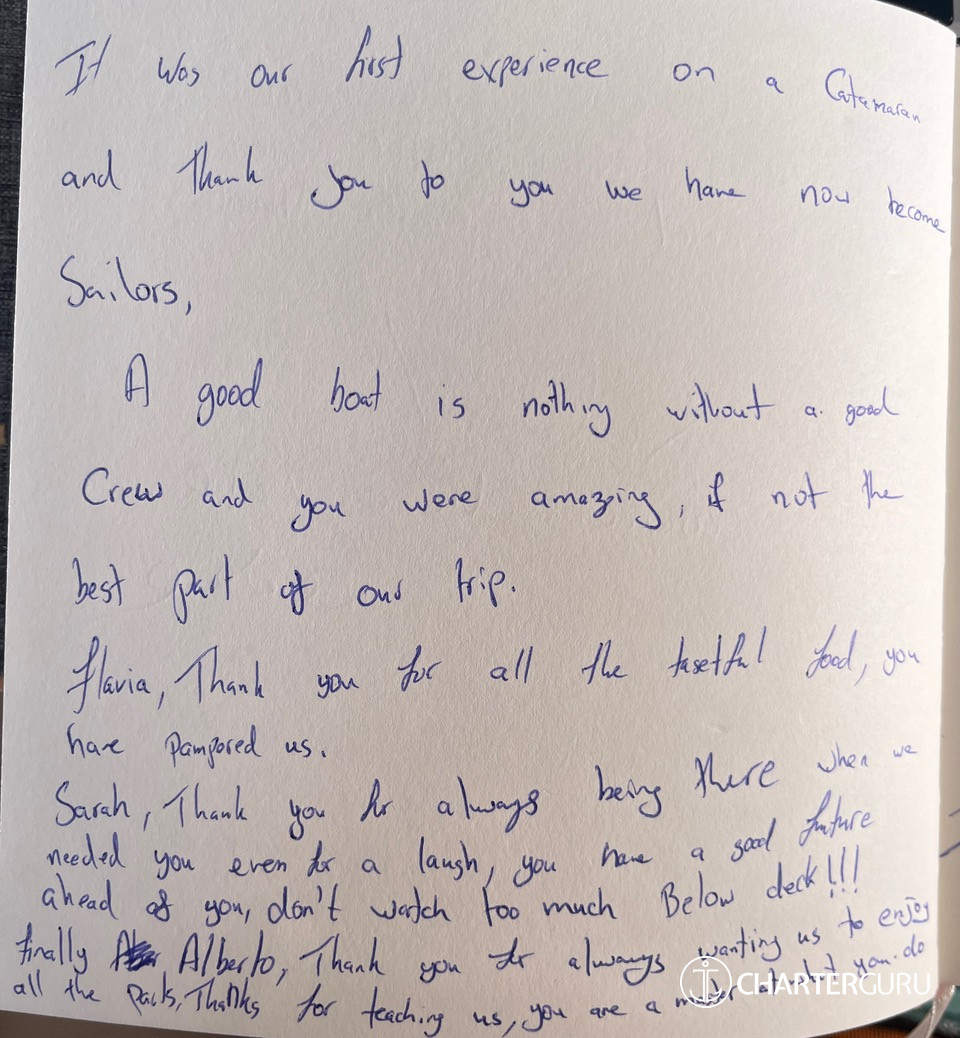 It was our first experience on a Catamaran
and Thank you to you we have now become
Sailors,
A good boat is nothing without a good
Crew and you were amazing, if not the
best part of our trip.
flavia, Thank you for all the tasetful food, you
have pampored us.
Sarah, Thank you for always being there when we
needed you even for a laugh, you have a good future
ahead of you, don't watch too much Below deck!!!
finally Alberto, Thank you for always wanting us to enjoy
all the parts, Thanks for teaching us, you are a what you do
CHARTERGURU